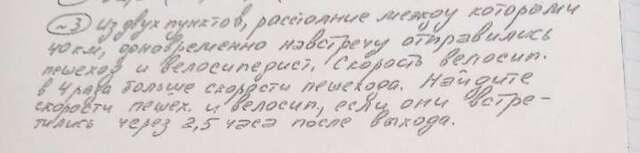 ~3 Из двух пунктов, расстояние между которыми
40 км, одновременно навстречу отправились
пешеход и велосипедист. Скорость велосип.
в 4 раза больше скорости пешехода. Найдите
скорости пешех. и велосип., если они встре-
тились через 2,5 часа после выхода.